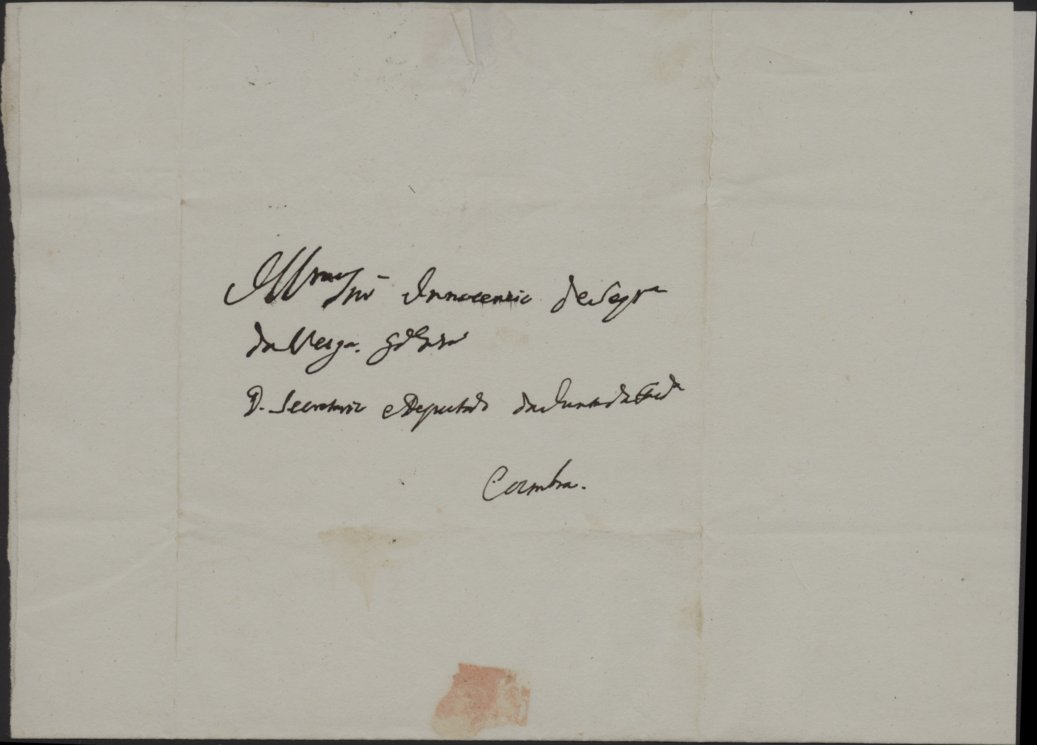 Illmo Snr Innocencio de Souza
da Veiga. gde
D. Secretario e Deputado da Junta da Fazda
Coimbra.